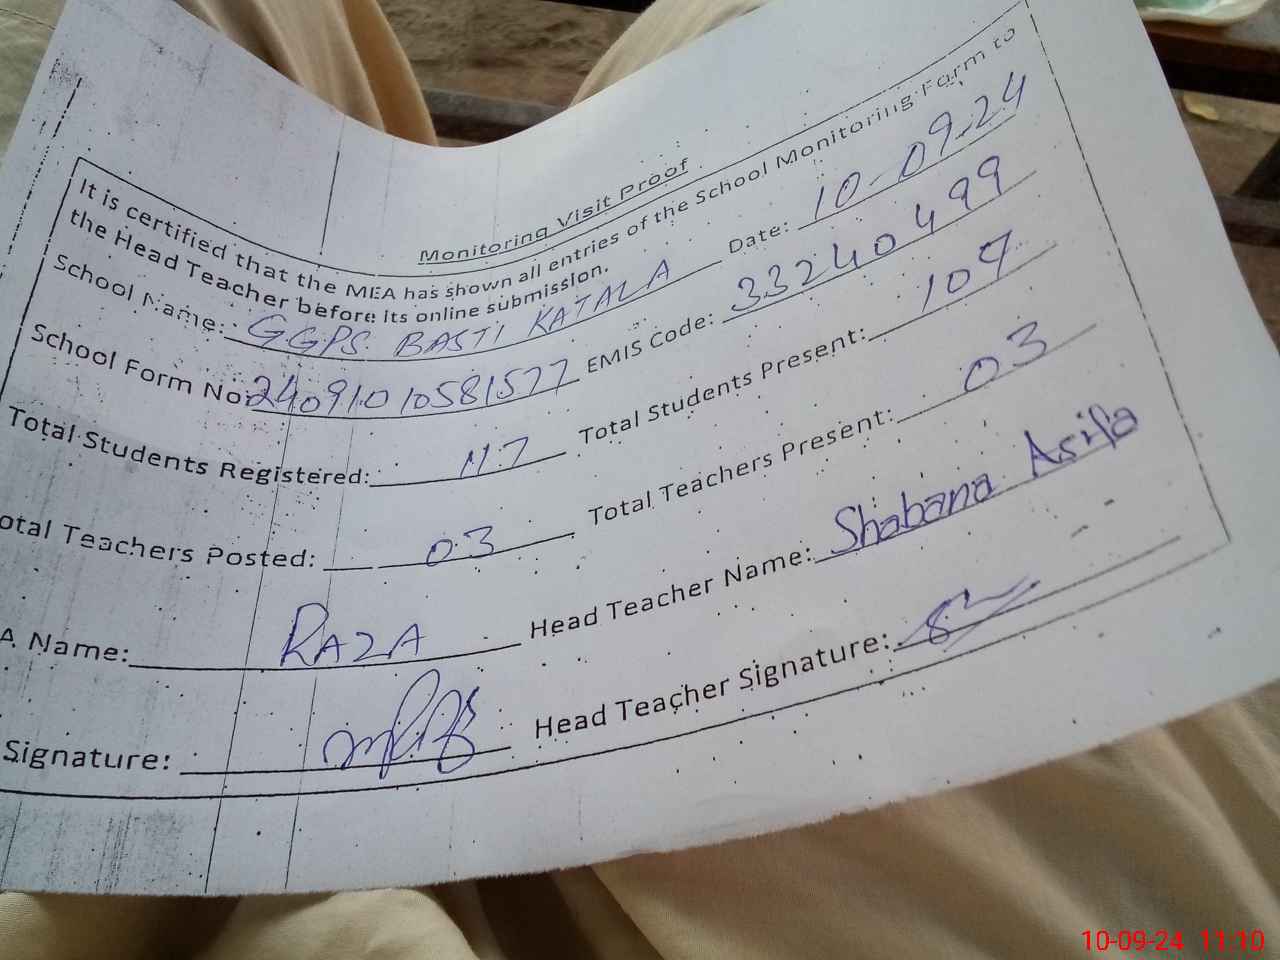 Monitoring Visit Proof
It is certified that the MEA has shown all entries of the School Monitoring Form to
the Head Teacher before its online submission.
School Name: GGPS BASTI KATALA Date: 10-09-24
School Form No: 24091010581577 EMIS Code: 33240499
Total Students Registered: 117 Total Students Present: 107
otal Teachers Posted: 03 Total Teachers Present: 03
A Name: RAZA Head Teacher Name: Shabana Asifa
Signature: Head Teacher Signature:
10-09-24 11:10